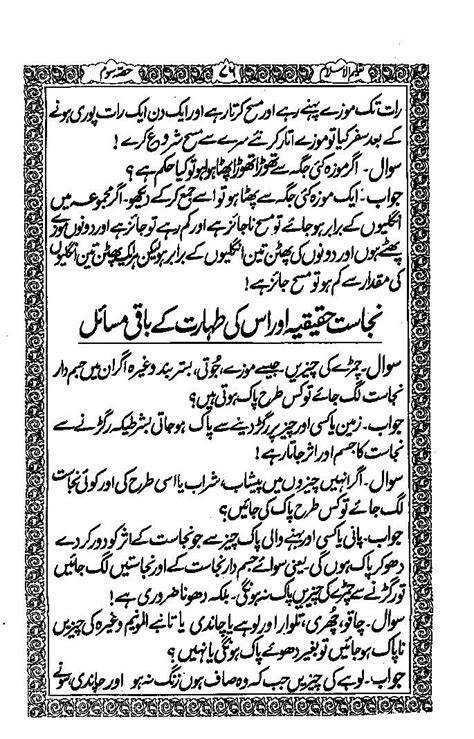 حصّہ سوم ۷۶ تعلیم الاسلام
رات تک موزے پہنے رہے اور مسح کرتا رہے اور ایک دن ایک رات پوری ہونے
کے بعد سفر کیا تو موزے اتار کر نئے سرے سے مسح شروع کرے !
سوال۔ اگر موزہ کئی جگہ سے تھوڑا تھوڑا پھٹا ہوا ہو تو کیا حکم ہے ؟
جواب۔ ایک موزہ کئی جگہ سے پھٹا ہو تو اسے جمع کر کے دیکھو۔ اگر مجموعہ تین
انگلیوں کے برابر ہو جائے تو مسح ناجائز ہے اور کم رہے تو جائز ہے اور دونوں موزے
پھٹے ہوں اور دونوں کی پھٹن تین انگلیوں کے برابر ہو لیکن ہر ایک پھٹن تین انگلیوں
کی مقدار سے کم ہو تو مسح جائز ہے !
نجاست حقیقیہ اور اس کی طہارت کے باقی مسائل
سوال۔ چمڑے کی چیزیں جیسے موزے، جوتی، بستر بند وغیرہ اگر ان میں جسم دار
نجاست لگ جائے تو کس طرح پاک ہوتی ہیں؟
جواب۔ زمین یا کسی اور چیز پر رگڑ دینے سے پاک ہو جاتی بشرطیکہ رگڑنے سے
نجاست کا جسم اور اثر جاتا رہے !
سوال۔ اگر انہیں چیزوں میں پیشاب، شراب یا اسی طرح کی اور کوئی نجاست
لگ جائے تو کس طرح پاک کی جائیں؟
جواب۔ پانی یا کسی اور بہنے والی پاک چیز سے جو نجاست کے اثر کو دور کر دے
دھو کر پاک ہوں گی۔ یعنی سوائے جسم دار نجاست کے اور نجاستیں لگ جائیں
تو رگڑنے سے چمڑے کی چیزیں پاک نہ ہونگی۔ بلکہ دھونا ضروری ہے !
سوال۔ چاقو، چھری، تلوار اور لوہے یا چاندی یا تانبے المونیم وغیرہ کی چیزیں
ناپاک ہو جائیں تو بغیر دھوئے پاک ہونگی یا نہیں؟
جواب۔ لوہے کی چیزیں جب کہ وہ صاف ہوں زنگ نہ ہو اور چاندی، سونے